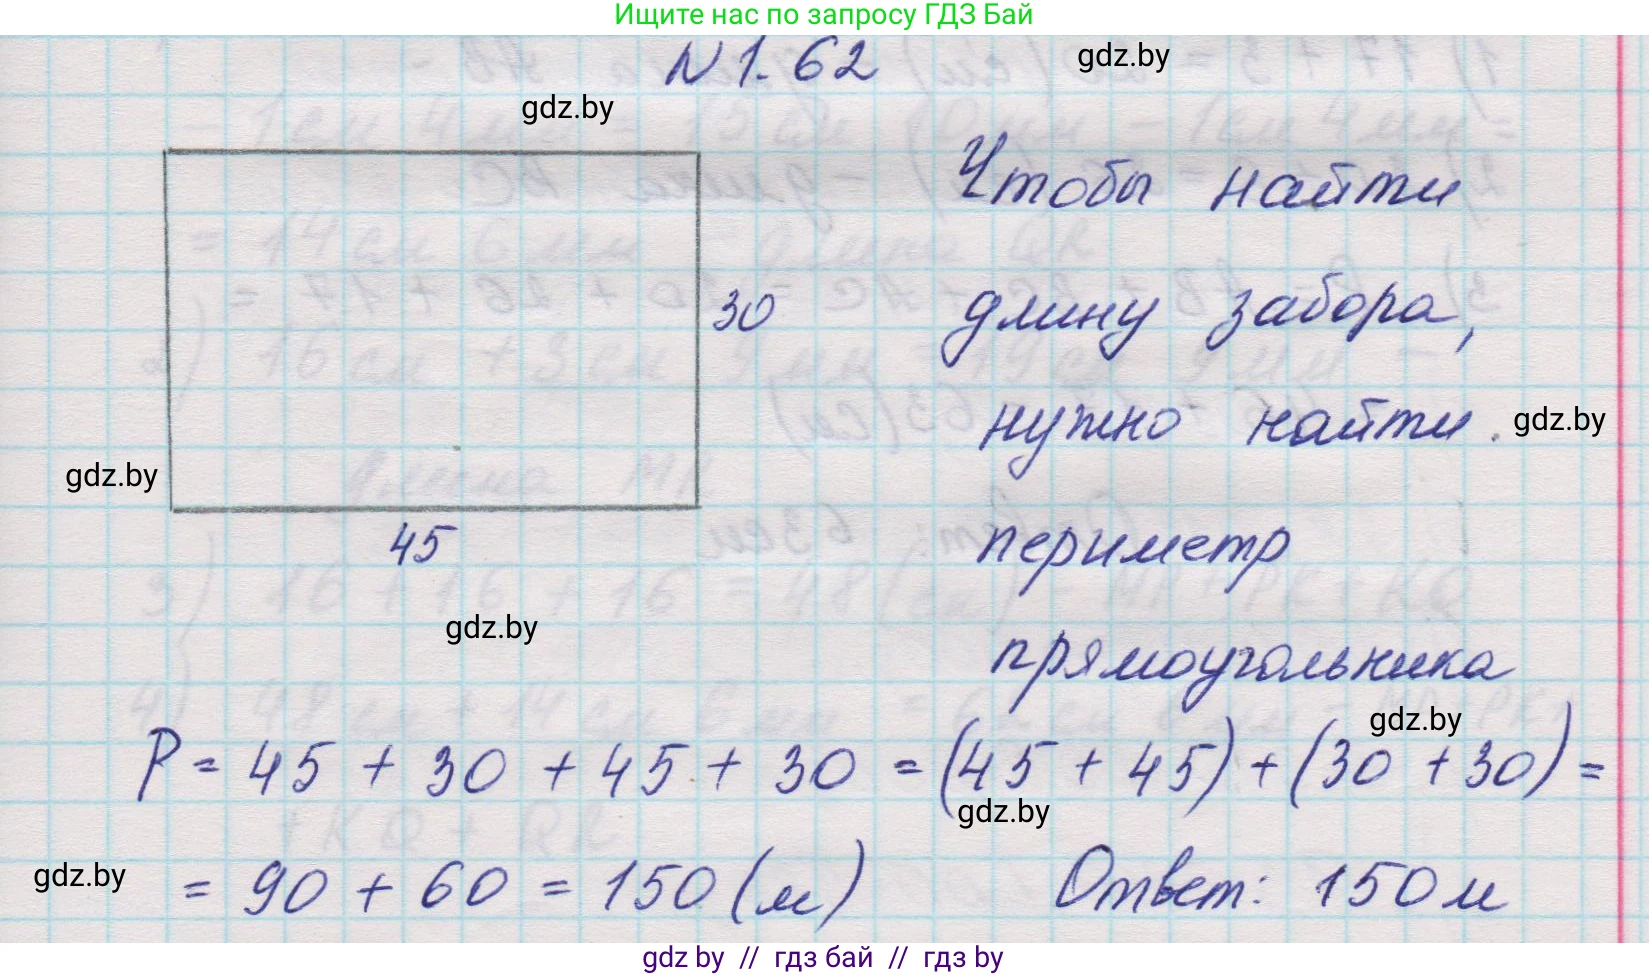 Ищите нас по запросу ГДЗ Бай
N 1.62
gdz.by
gdz.by
Чтобы найти
30
длину забора,
нужно найти
gdz.by
gdz.by
45
периметр
gdz.by
прямоугольника
gdz.by
P = 45 + 30 + 45 + 30 = (45 + 45) + (30 + 30) =
gdz.by
gdz.by
= 90 + 60 = 150 (м)
Ответ: 150 м
gdz.by // гдз бай // гдз by